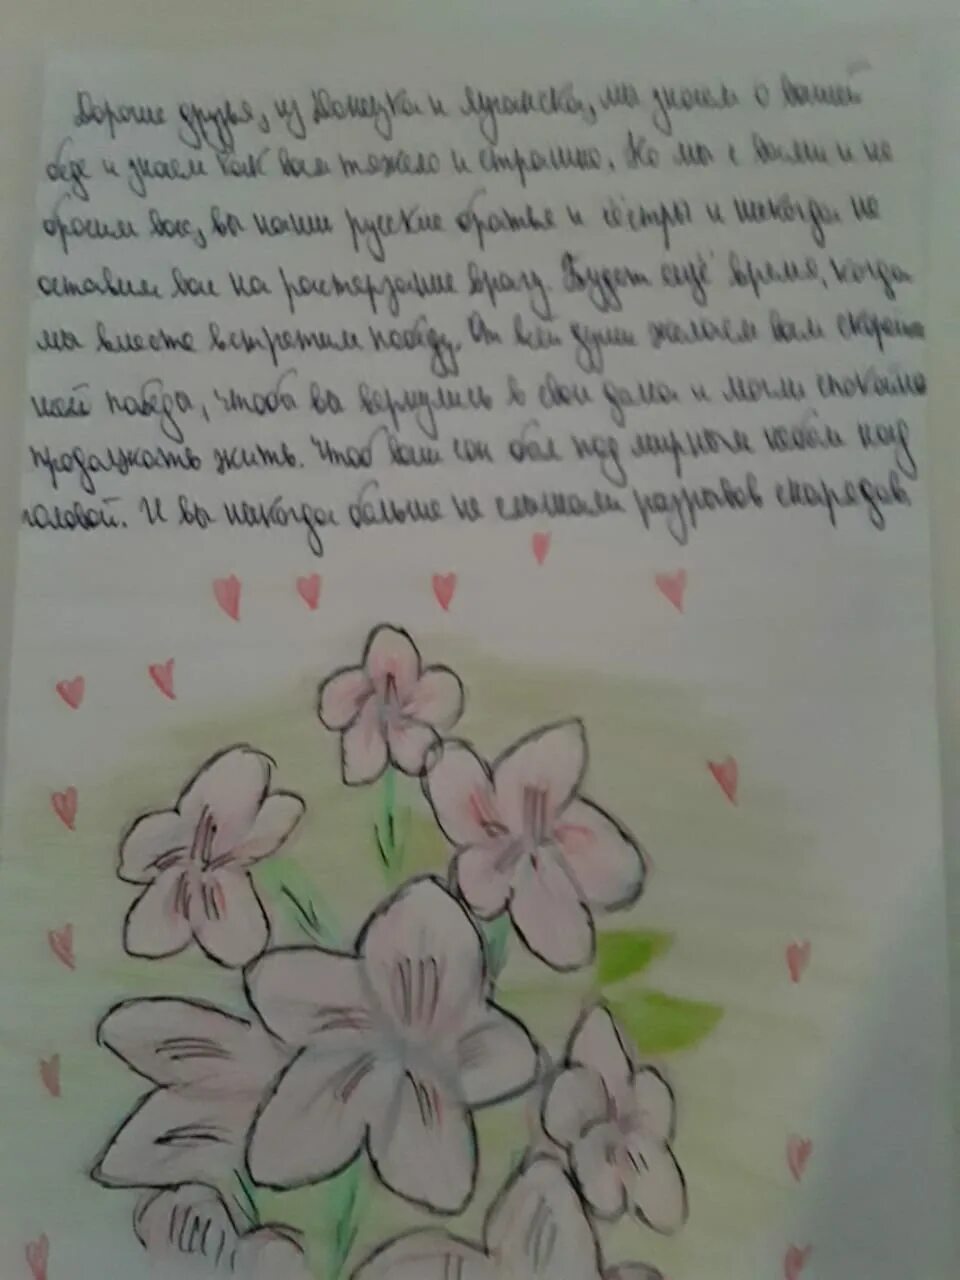 Дорогие друзья, из Донецка и Луганска, мы знаем о вашей
беде и знаем как вам тяжело и страшно. Но мы с вами и не
бросим вас, вы наши русские братья и сёстры и никогда не
оставим вас на растерзание врагу. Будет ещё время, когда
мы вместе встретим победу. От всей души желаем вам скорей
шей победы, чтобы вы вернулись в свои дома и могли спокойно
продолжать жить. Чтоб ваш сон был под мирным небом над
головой. И вы никогда больше не слышали разрывов снарядов.